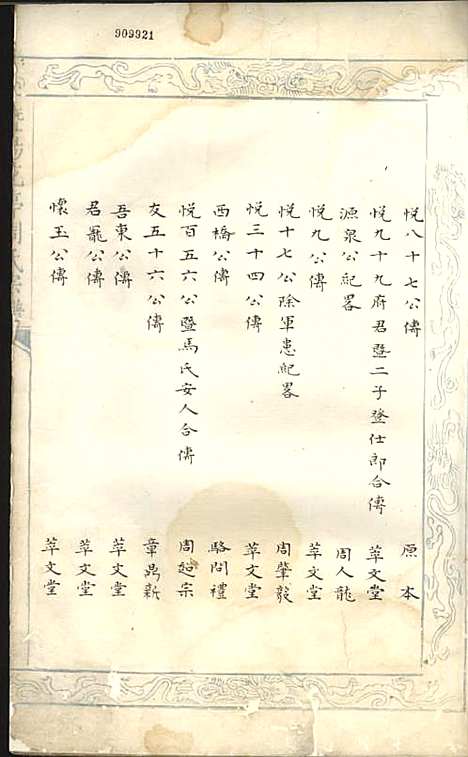 909921
悅八十七公傳 原本
悅九十九府君暨二子登仕郎合傳 萃文堂
源泉公紀畧 周人龍
悅九公傳 萃文堂
悅十七公除軍患紀畧 周肇毅
悅三十四公傳 萃文堂
西橋公傳 駱問禮
悅百五六公暨馬氏安人合傳 周 宗
友五十六公傳 章禺新
吾東公傳 萃文堂
君寵公傳 萃文堂
懷玉公傳 萃文堂